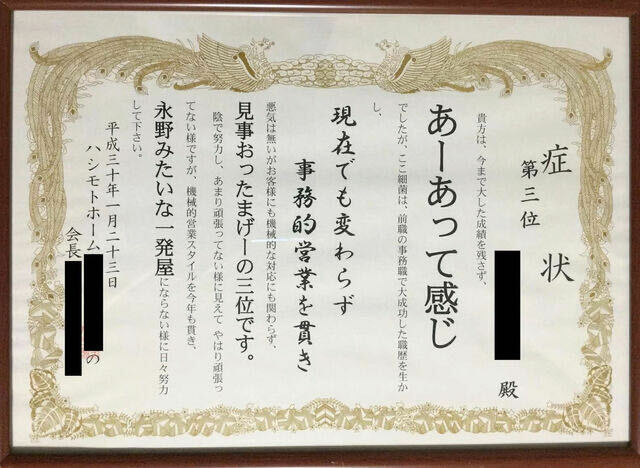 症状
第三位
殿
貴方は、今まで大した成績を残さず、
あーあって感じ
でしたが、ここ細菌は、前職の事務職で大成功した職歴を生か
し、
現在でも変わらず
事務的営業を貫き
悪気は無いがお客様にも機械的な対応にも関わらず、
見事おったまげーの三位です。
陰で努力し、あまり頑張ってない様に見えて やはり頑張っ
てない様ですが、機械的営業スタイルを今年も貫き、
永野みたいな一発屋にならない様に日々努力
して下さい。
平成三十年一月二十三日
ハシモトホーム の
会長